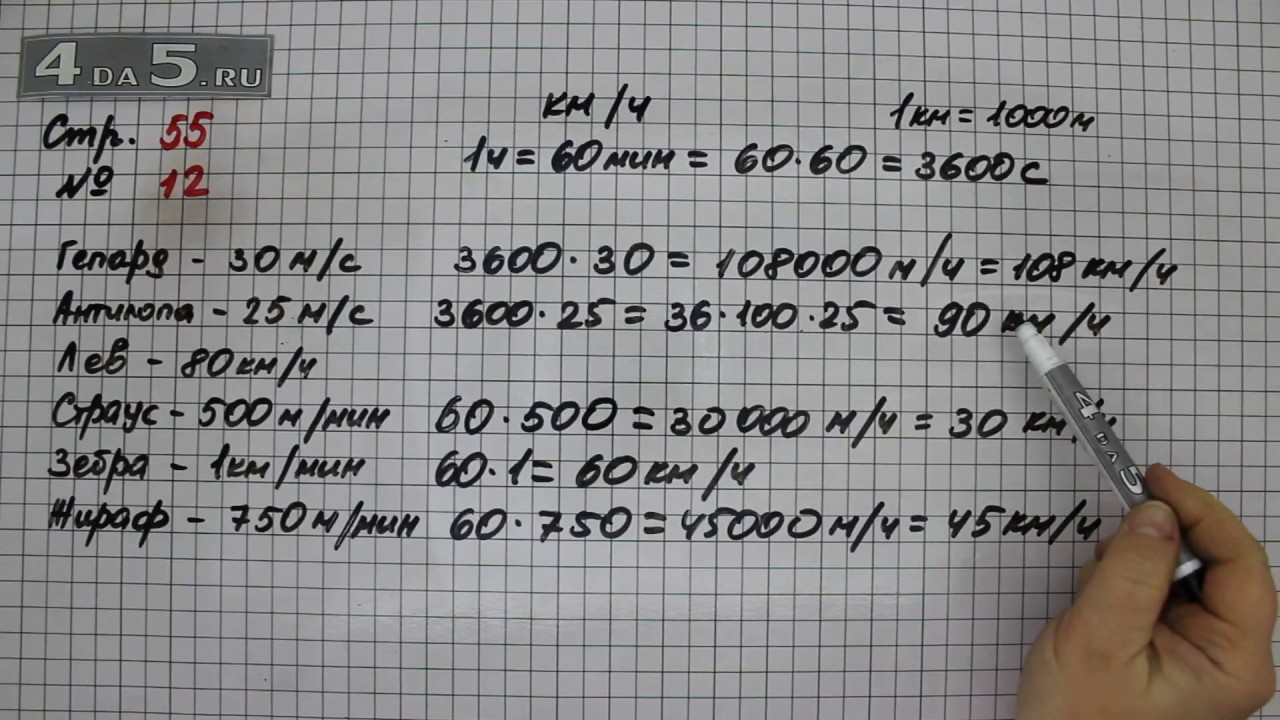 4 DA 5.RU
Стр. 55
№ 12
км/ч
1км = 1000м
1ч = 60мин = 60·60 = 3600с
Гепард - 30м/с 3600·30 = 108000м/ч = 108км/ч
Антилопа - 25м/с 3600·25 = 36·100·25 = 90км/ч
Лев - 80км/ч
Страус - 500м/мин 60·500 = 30000м/ч = 30 км
Зебра - 1км/мин 60·1 = 60км/ч
Жираф - 750м/мин 60·750 = 45000м/ч = 45км/ч
4 ДА 5